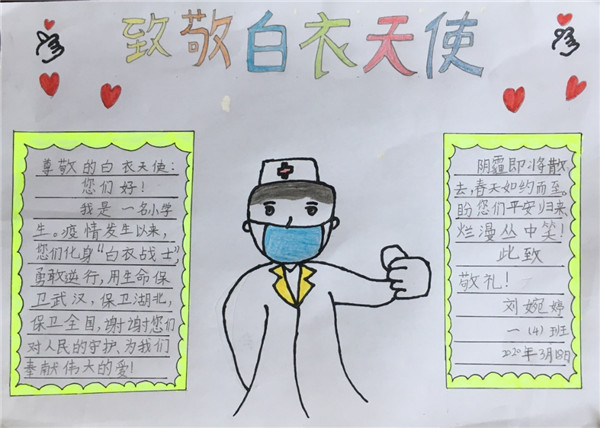 致敬白衣天使
尊敬的白衣天使:
您们好!
我是一名小学
生。疫情发生以来,
您们化身“白衣战士”,
勇敢逆行,用生命保
卫武汉,保卫湖北,
保卫全国,谢谢您们
对人民的守护、为我们
奉献伟大的爱!
阴霾即将散
去,春天如约而至。
盼您们平安归来
烂漫丛中笑!
此致
敬礼!
刘婉婷
一(4)班
2020年3月18日